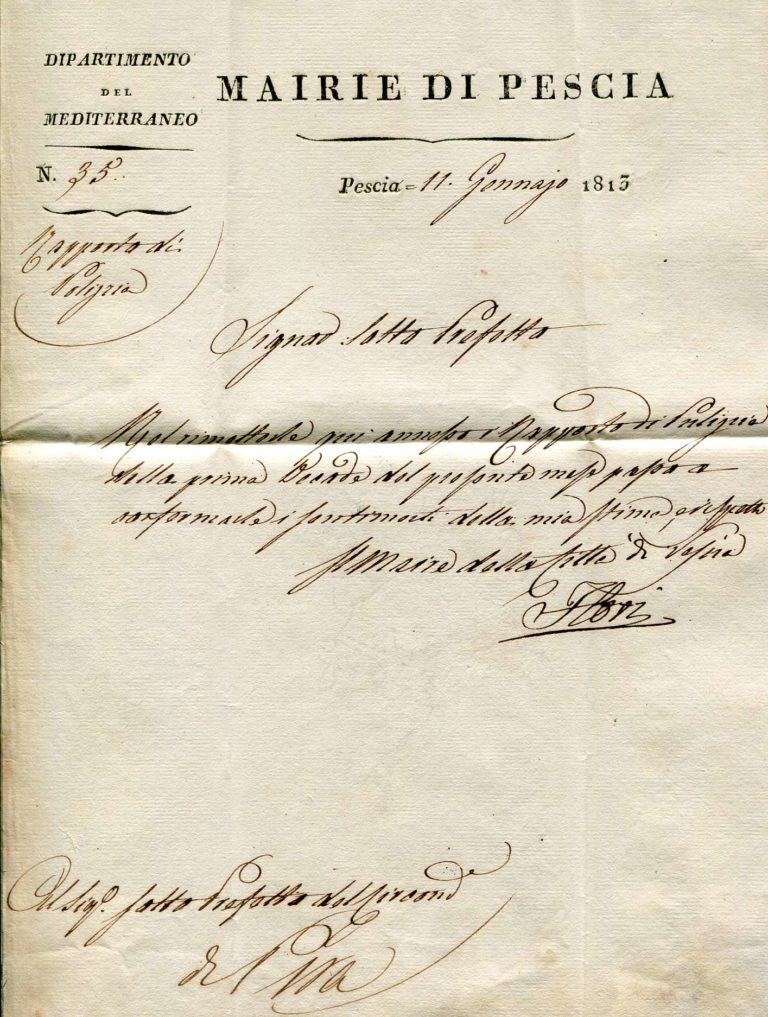 DIPARTIMENTO
DEL
MEDITERRANEO
MAIRIE DI PESCIA
N. 35.
Pescia = 11. Gennajo 1813
Rapporto di
Polizia
Signor Sotto Prefetto
Nel rimetterle qui annesso i Rapporto di Pulizia
della prima Decade del presente mese passo a
confermarle i sentimenti della mia stima, e rispetto
Il Maire della Città di Pescia
Al Sigr. Sotto Prefetto del Circond.e
di Pisa